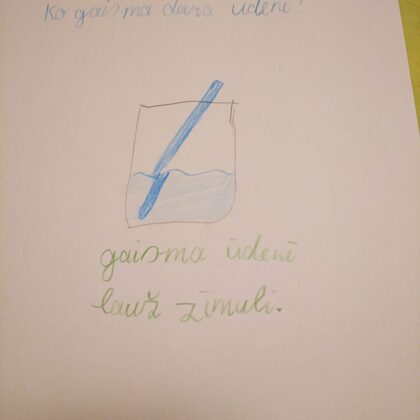 Ko gaisma dara ūdenī?
gaisma ūdenī
lauž zīmuli.